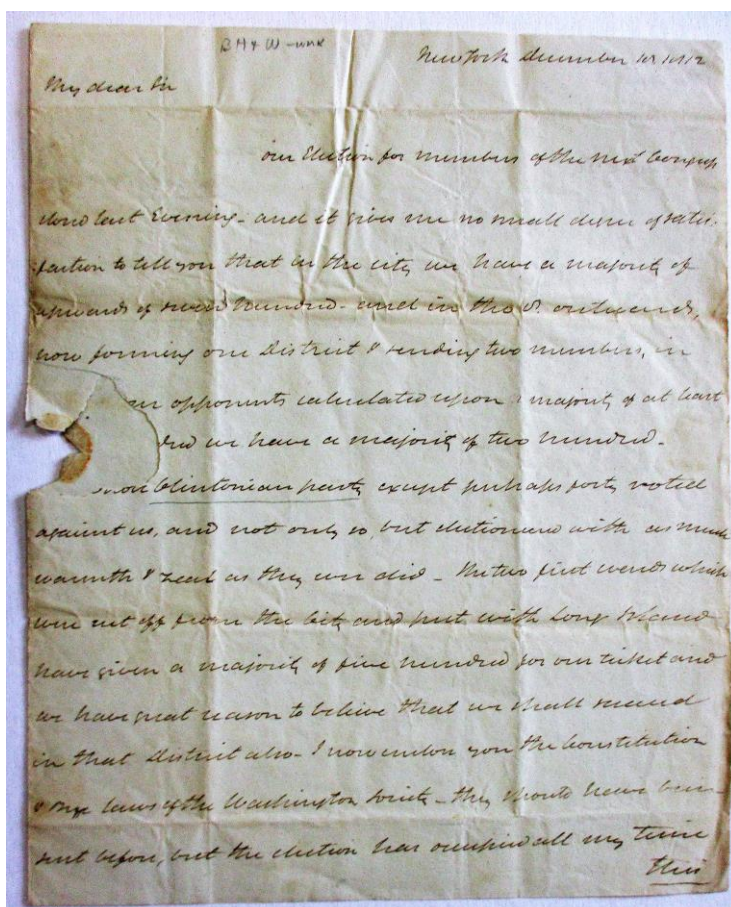 New York December 1812
My dear Sir
our Election for members of the next Congress
closed last Evening - and it gives me no small degree of satis-
faction to tell you that in the city we have a majority of
upwards of hundred - and in the 8 outwards,
now forming one District & sending two members, in
opponents calculated upon majority of at least
we have a majority of two hundred -
Clintonian party except perhaps forty voted
against us, and not only so, but electioneered with as much
warmth & zeal as they ever did - The two first wards which
were cut off from the City and put with Long Island
have given a majority of five hundred for our ticket and
we have great reason to believe that we shall succeed
in that District also - I now enclose you the Constitution
& laws of the Washington Society - they should have been
sent before, but the election has occupied all my time
this